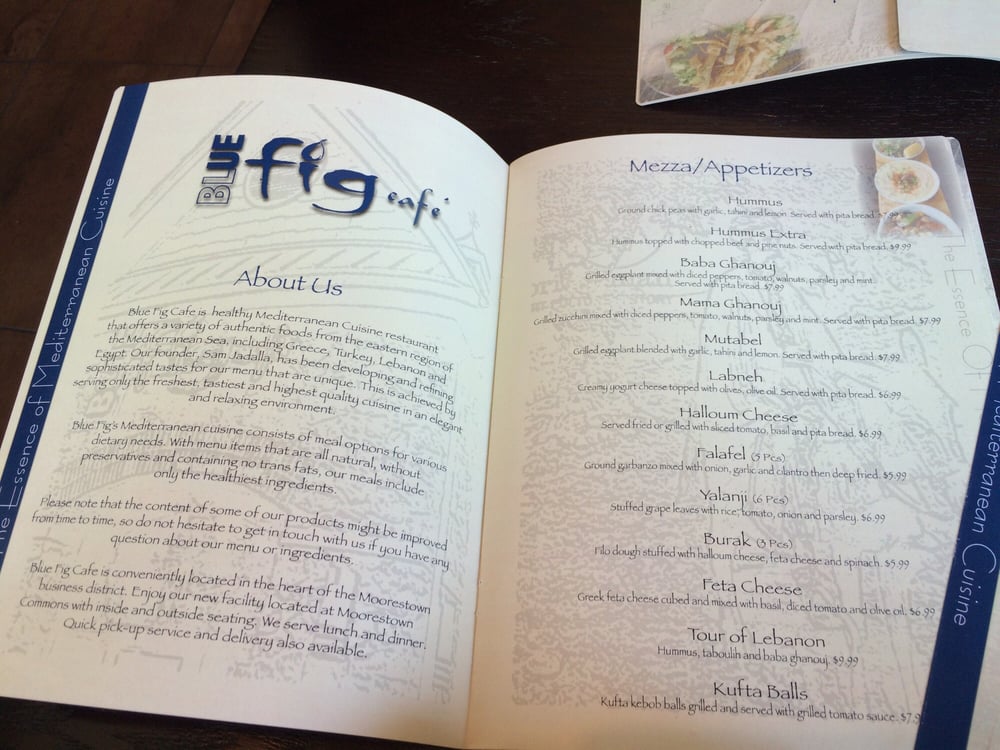 BLUE fig cafe
About Us
Blue Fig Cafe is healthy Mediterranean Cuisine restaurant
that offers a variety of authentic foods from the eastern region of
the Mediterranean Sea, including Greece, Turkey, Lebanon and
Egypt. Our founder, Sam Jadalla, has been developing and refining
sophisticated tastes for our menu that are unique. This is achieved by
serving only the freshest, tastiest and highest quality cuisine in an elegant
and relaxing environment.
Blue Fig's Mediterranean cuisine consists of meal options for various
dietary needs. With menu items that are all natural, without
preservatives and containing no trans fats, our meals include
only the healthiest ingredients.
Please note that the content of some of our products might be improved
from time to time, so do not hesitate to get in touch with us if you have any
question about our menu or ingredients.
Blue Fig Cafe is conveniently located in the heart of the Moorestown
business district. Enjoy our new facility located at Moorestown
Commons with inside and outside seating. We serve lunch and dinner.
Quick pick-up service and delivery also available.
The Essence of Mediterranean Cuisine
Mezza/Appetizers
Hummus
Ground chick peas with garlic, tahini and lemon. Served with pita bread. $7.99
Hummus Extra
Hummus topped with chopped beef and pine nuts. Served with pita bread. $9.99
Baba Ghanouj
Grilled eggplant mixed with diced peppers, tomato, walnuts, parsley and mint.
Served with pita bread. $7.99
Mama Ghanouj
Grilled zucchini mixed with diced peppers, tomato, walnuts, parsley and mint. Served with pita bread. $7.99
Mutabel
Grilled eggplant blended with garlic, tahini and lemon. Served with pita bread. $7.99
Labneh
Creamy yogurt cheese topped with olives, olive oil. Served with pita bread. $6.99
Halloum Cheese
Served fried or grilled with sliced tomato, basil and pita bread. $6.99
Falafel (5 Pcs)
Ground garbanzo mixed with onion, garlic and cilantro then deep fried. $5.99
Yalanji (6 Pcs)
Stuffed grape leaves with rice, tomato, onion and parsley. $6.99
Burak (3 Pcs)
Filo dough stuffed with halloum cheese, feta cheese and spinach. $5.99
Feta Cheese
Greek feta cheese cubed and mixed with basil, diced tomato and olive oil. $6.99
Tour of Lebanon
Hummus, taboulih and baba ghanouj. $9.99
Kufta Balls
Kufta kebob balls grilled and served with grilled tomato sauce. $7.9
The Essence Of Mediterranean Cuisine